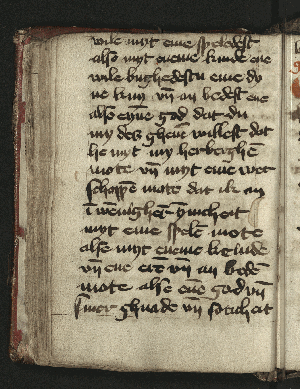 wile myt eme speledest
also myt eneme kinde ene
wile bughedestu eme dy
ne kny vn an bedest ene
alse eyne god dat du
my des gheue willest dat
he myt my herberghe
mote vn myt eme wer
schoppe mote dat ik an
myt eme spele mote
alse myt eneme kynde
vn ene ere vn an bede
mote alse ene god vn
syner ghnade vn soticheit